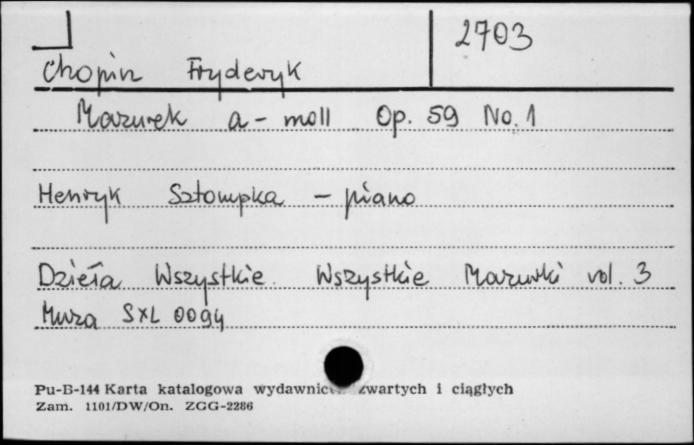 2703
Chopin Fryderyk
Mazurek a-moll Op. 59 No. 1
Henryk Sztompka - piano
Dzieła Wszystkie. Wszystkie Mazurki vol. 3
Muza SXL 0094
Pu-B-144 Karta katalogowa zwartych i ciągłych
Zam. 1101/DW/On. ZGG-2286